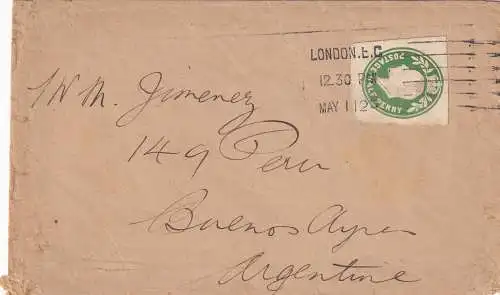 LONDON.E.C
12.30 PM
MAY 1 12
POSTAGE
HALFPENNY
Jimenez
149 Peru
Buenos Ayres
Argentine